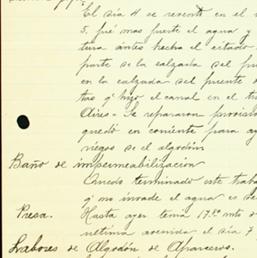 El día 4 se reventó en el
5, fué mas fuerte el agua y
tura antes hecha el estado
parte de la calzada del pu
en la calzada del puente d
tras q' hizo el canal en el tr
Aires - Se repararon provisio
quedó en corriente para
riegos de el algodón
Baño de impermeabilización
Quedó terminado este trab
q' me invade el agua es de
Presa. Hasta ayer tenia 17.50 mts d
ultima avenida el día 7
Labores de Algodón de Aparceros.